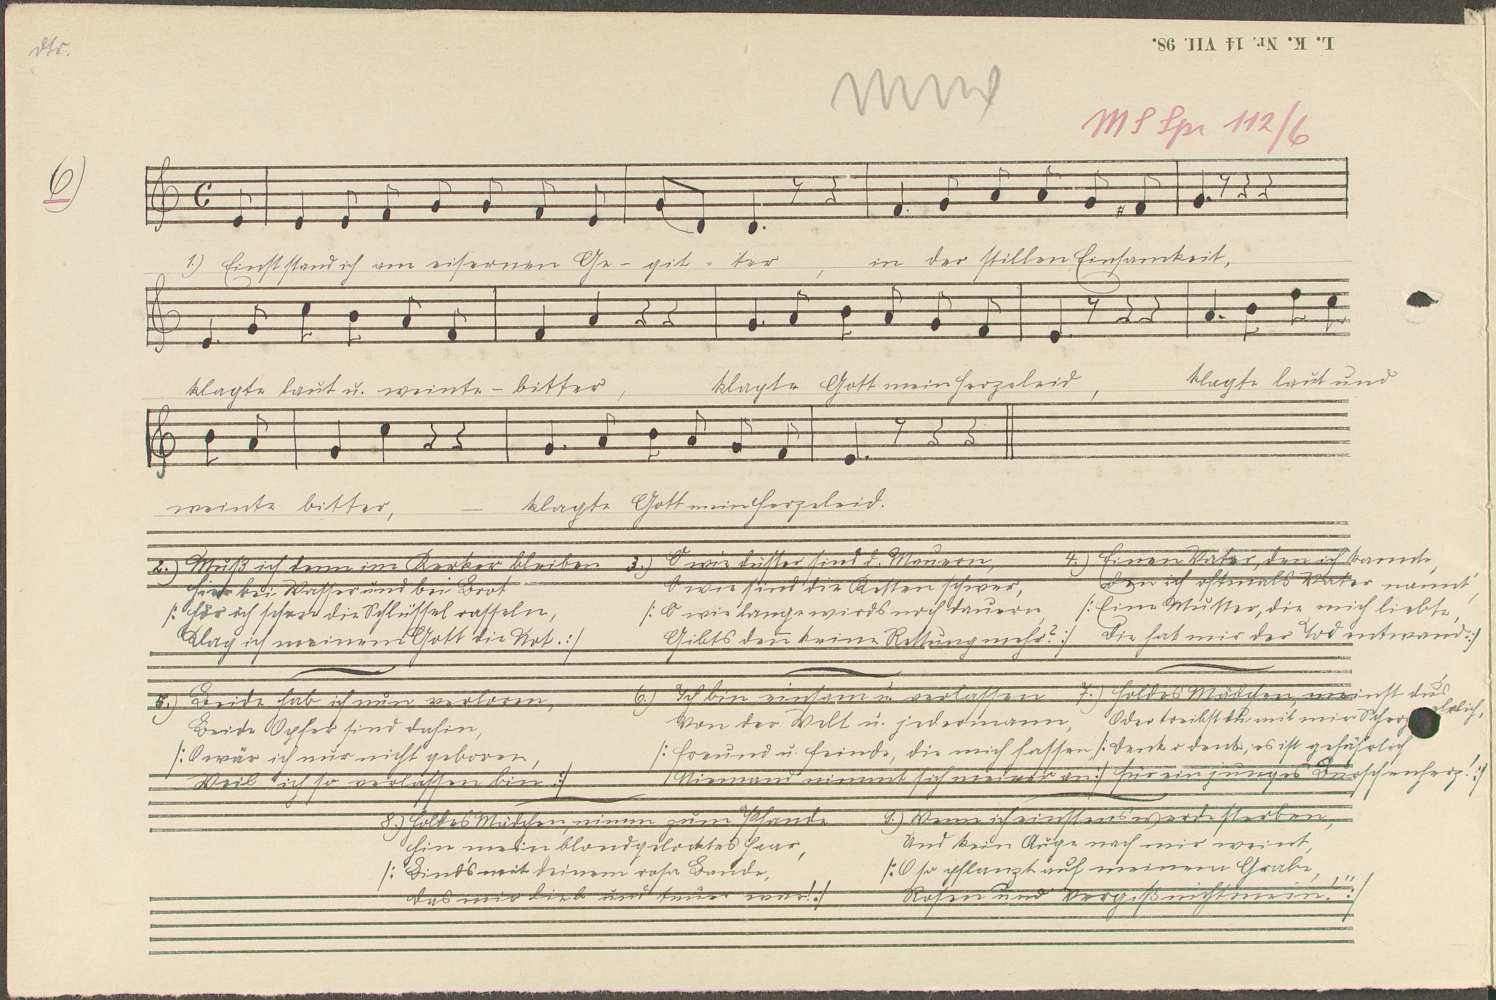 L. K. Nr. 14 VII. 98.
MS Spr 112/6
6)
1.) Einst stand ich am eisernen Ge - git - ter , in der stillen Einsamkeit,
klagte laut u. weinte - bitter, klagte Gott mein Herzeleid, klagte laut und
weinte bitter, — klagte Gott mein Herzeleid.
2.) Muß ich denn im Kerker bleiben
Hier bei Wasser und bei Brot
/: Hör ich schon die Schlüssel rasseln,
Klag ich meinem Gott die Not. :/
3.) O wie düster sind d. Mauern,
O wie sind die Ketten schwer,
/: O wie lange wirds noch dauern,
Gibts deñ keine Rettung mehr? :/
4.) Einen Vater, den ich kannte,
Den ich oftmals Vater nannt',
/: Eine Mutter, die mich liebte,
Die hat mir der Tod entwand. :/
5.) Beide hab ich nun verloren,
Beide Opfer sind dahin,
/: O wär ich nur nicht geboren,
Weil ich so verlassen bin :/
6.) Ich bin einsam u. verlassen
Von der Welt u. jedermann,
/: Freund u. Feinde, die mich hassen
Niemand nimmt sich meiner an :/
7.) Holdes Mädchen, meinst du's ehrlich,
Oder treibst du mit mir Scherz
/: Denk o denk, es ist gefährlich
Für ein junges Burschenherz! :/
8.) Holdes Mädchen, nimm zum Pfande
Hin mein blondgelocktes Haar,
/: Bind's mit deinem rosa Bande,
Das mir lieb und teuer war! :/
9.) Wenn ich einstens werde sterben,
Und kein Auge nach mir weint,
/: O so pflanzt auf meinem Grabe,
Rosen und Vergißnichtmein! :/